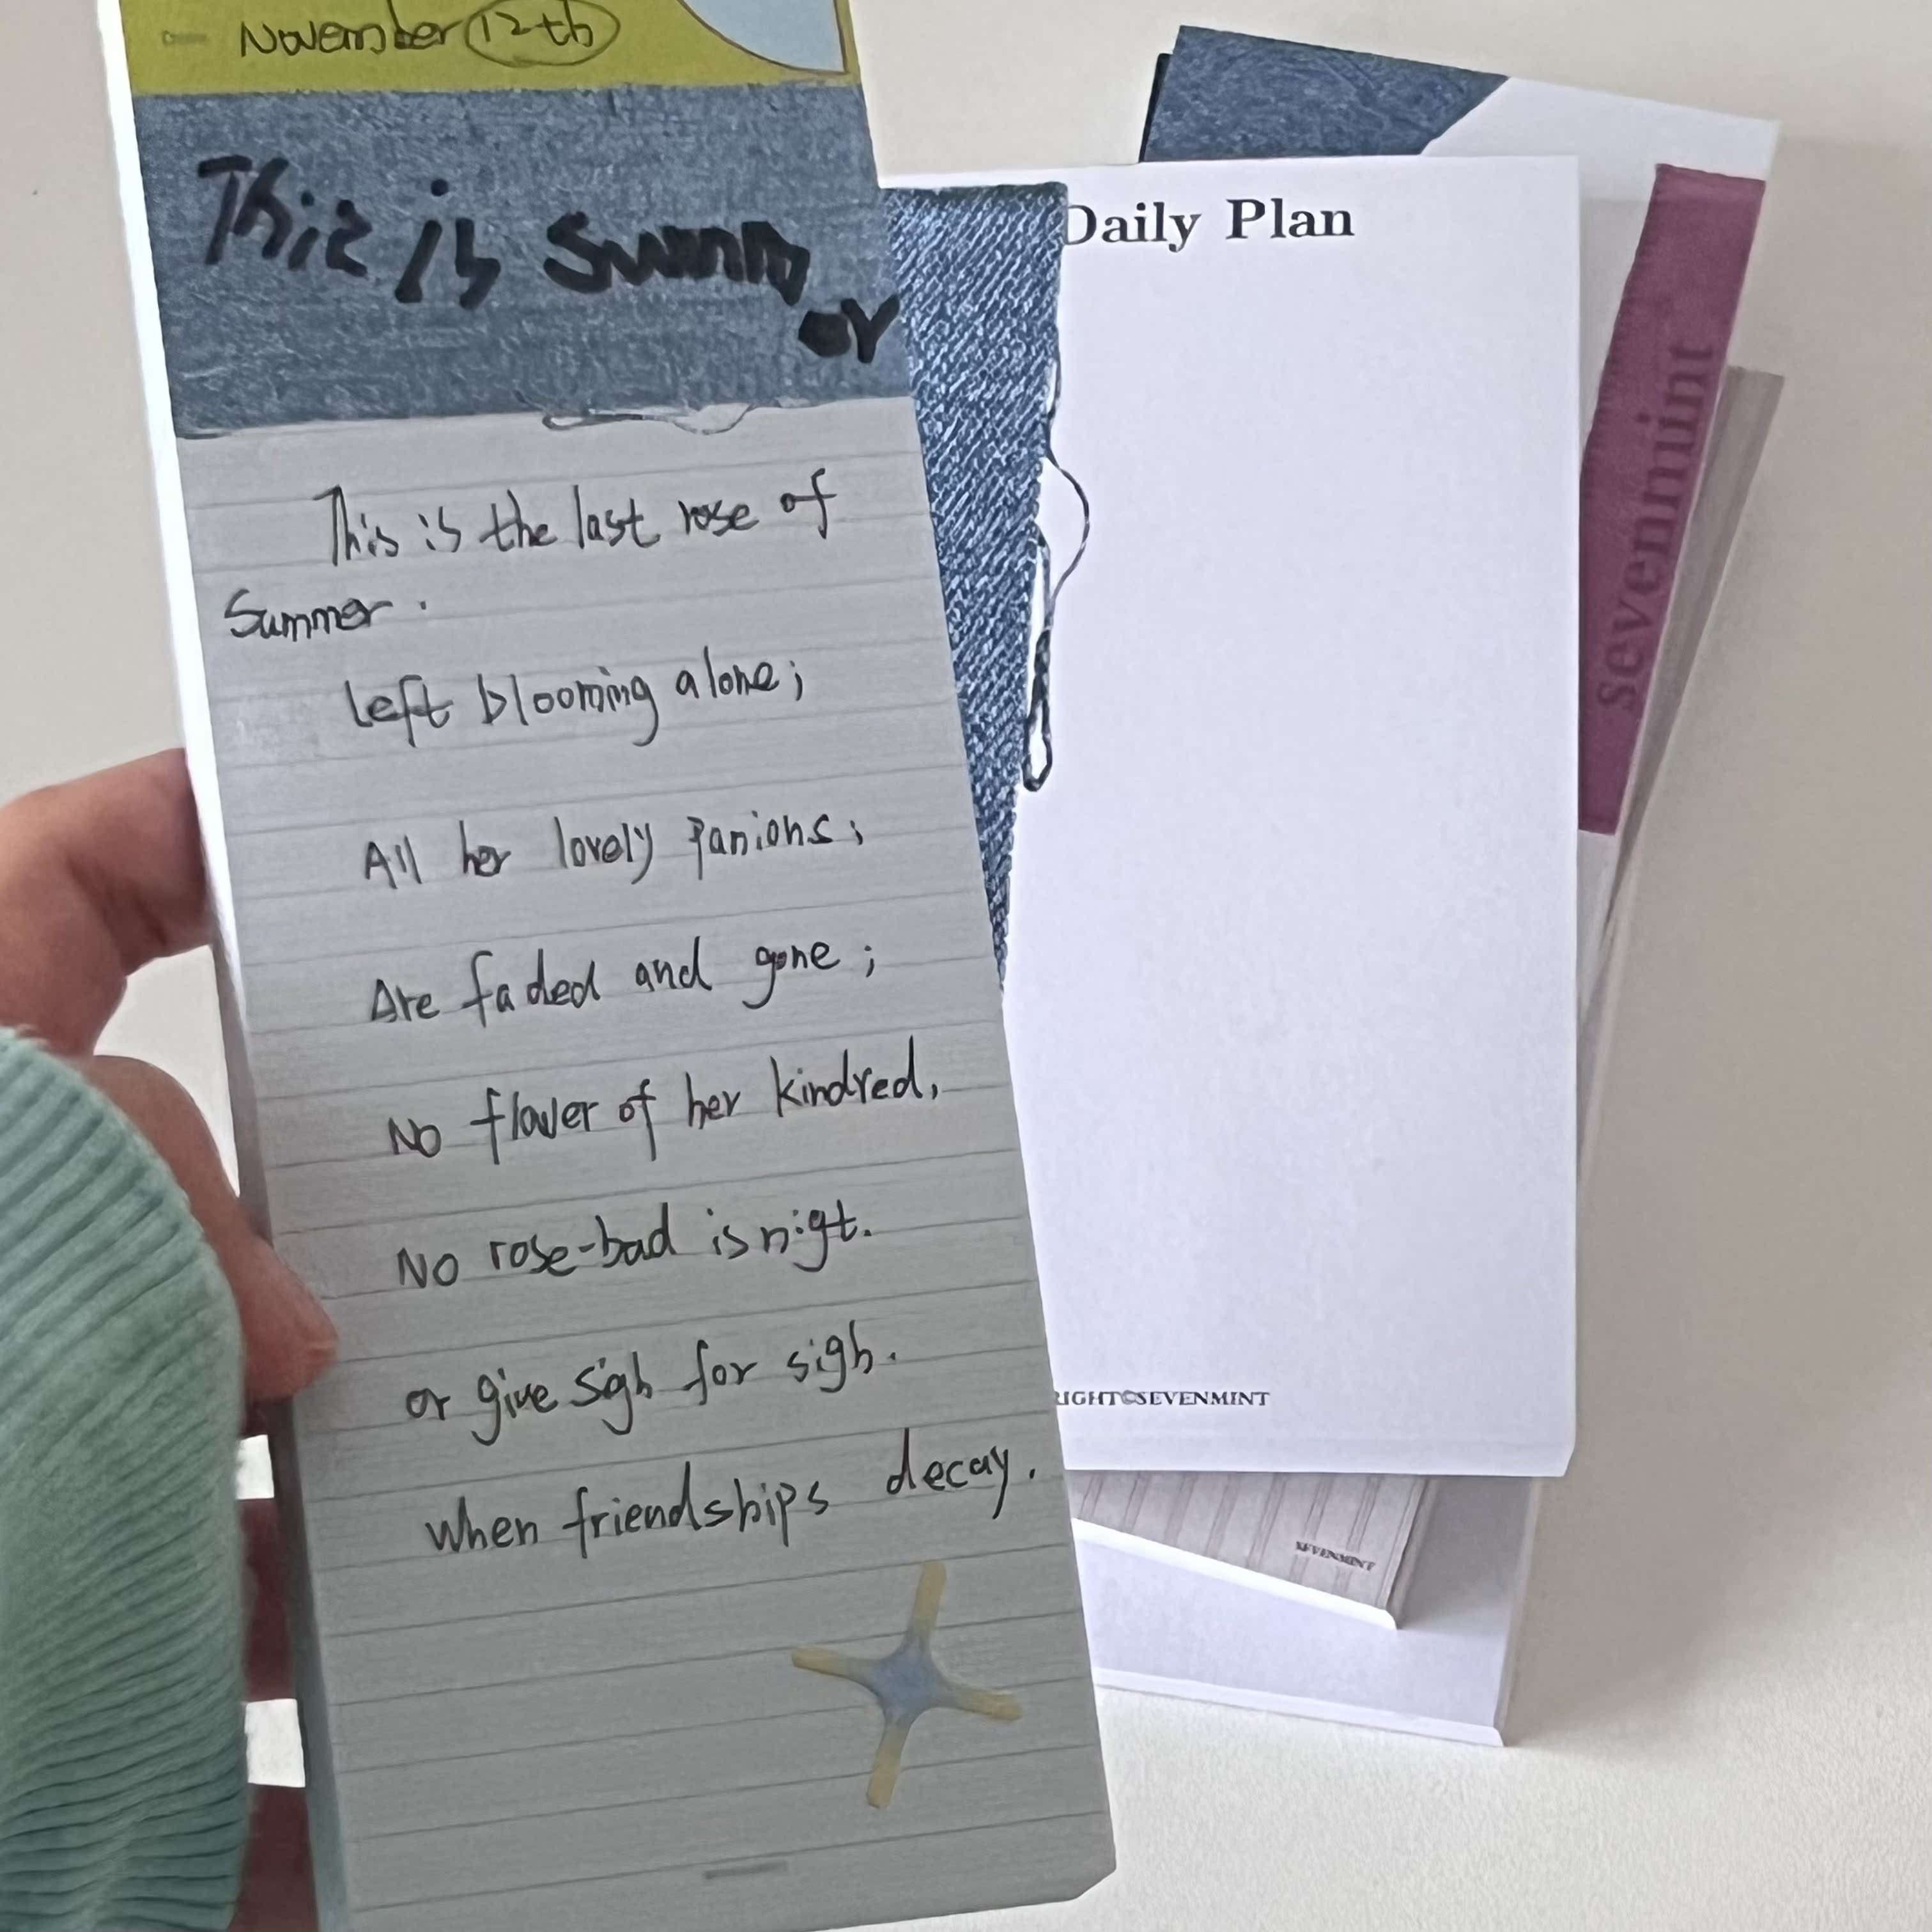 November 12th
This is Summ
er
This is the last rose of
Summer.
left blooming alone;
All her lovely panions;
Are faded and gone;
No flower of her kindred,
No rose-bad is nigt.
or give sigh for sigh.
when friendships decay.
Daily Plan
RIGHT©SEVENMINT
sevenmint
SEVENMINT